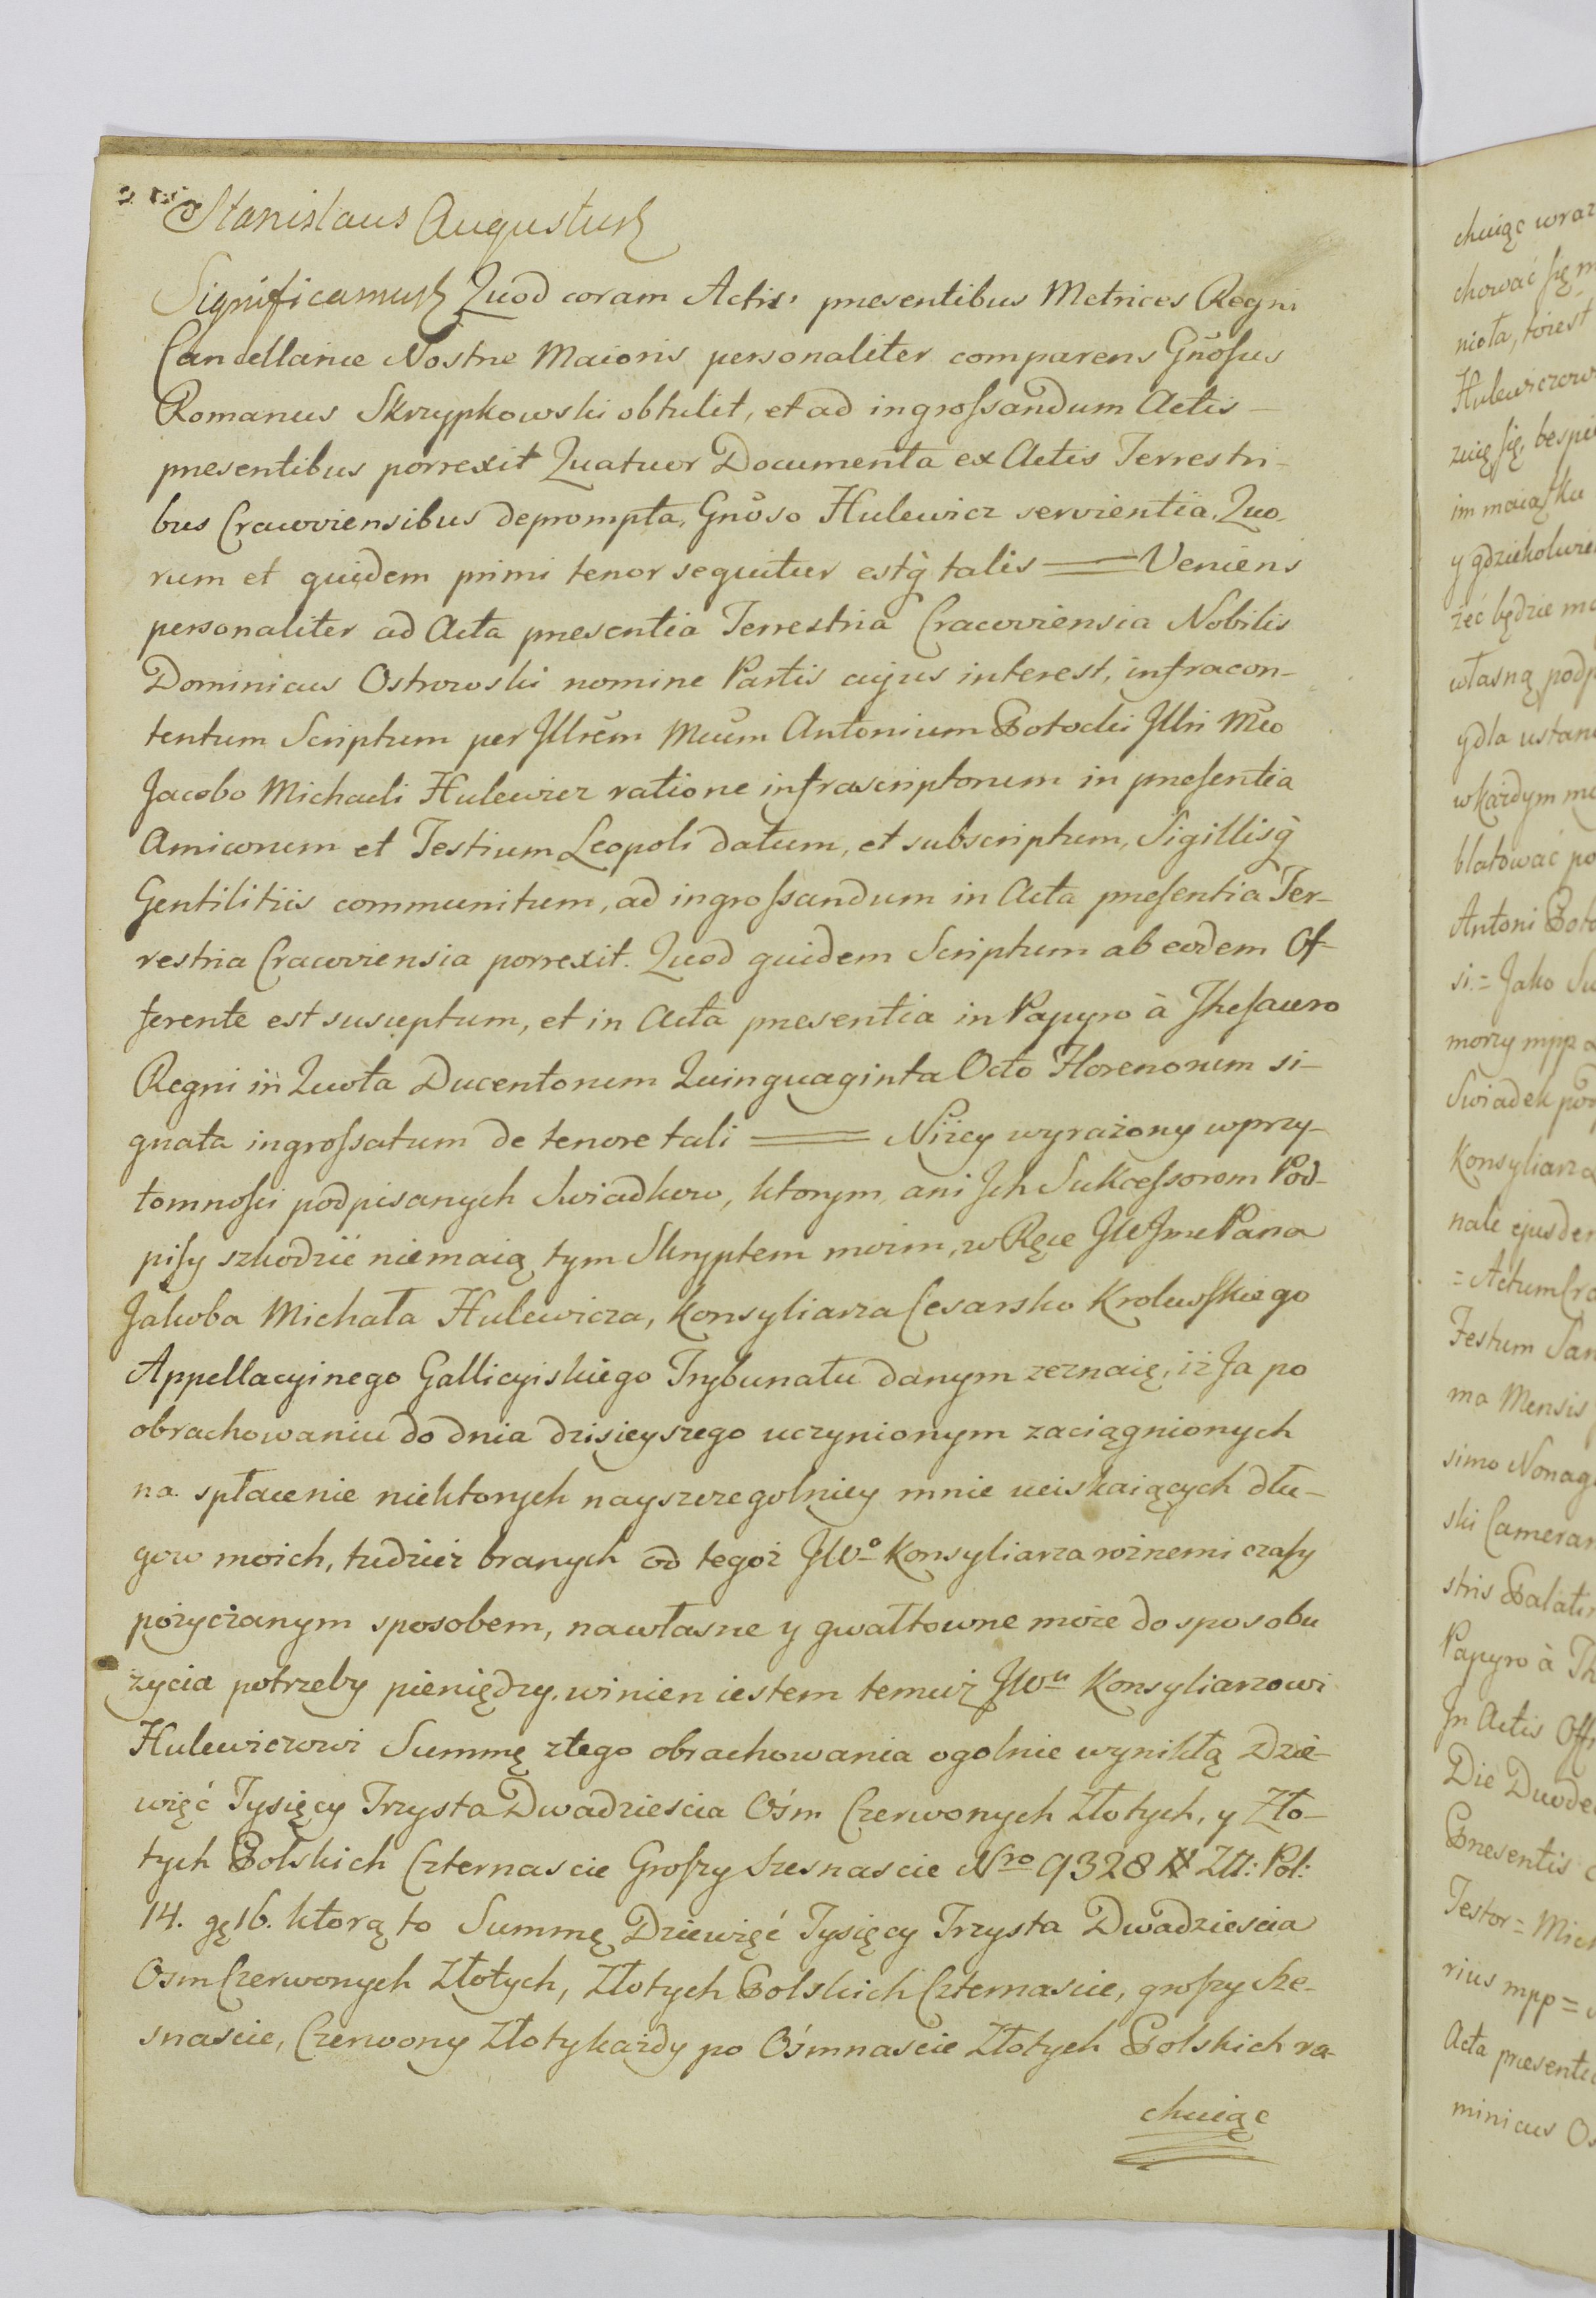 Stanislaus Augustus
Significamus Quod coram Actis presentibus Metrices Regni
Cancellariæ Nostræ Maioris personaliter comparens Gnosus
Romanus Skrzypkowski obtulit, et ad ingrossandum Actis
præsentibus porrexit Quatuor Documenta ex Actis Terrestri-
bus Cracoviensibus deprompta, Gnoso Hulewicz servientia. Quo-
rum et quidem primi tenor sequitur estq̀ talis = Veniens
personaliter ad Acta præsentia Terrestria Cracoviensia Nobilis
Dominicus Ostrowski nomine Partis cujus interest, infracon-
tentum Scriptum per Jllrem Mcum Antonium Potocki Jllri Mco
Jacobo Michaeli Hulewicz ratione infrascriptorum in præsentia
Amicorum et Testium Leopoli datum, et subscriptum, Sigillisq̀
Gentilitiis communitum, ad ingrossandum in Acta præsentia Ter-
restria Cracoviensia porrexit. Quod quidem Scriptum ab eodem Of-
ferente est susceptum, et in Acta præsentia in Papyro à Thesauro
Regni in Quota Ducentorum Quinquaginta Octo Florenorum si-
gnata ingrossatum de tenore tali = Niżey wyrażony wprzy-
tomnosci podpisanych Swiadkow, ktorym ani Jch Sukcessorom Pod-
pisy szkodzić niemaią tym Skryptem moim, w Ręce JWJmc Pana
Jakoba Michała Hulewicza, Konsyliarza Cesarsko Krolewskiego
Appellacyinego Gallicyiskiego Trybunału danym zeznaię, iż Ja po
obrachowaniu do dnia dzisieyszego uczynionym zaciągnionych
na spłacenie niektorych nayszczegolniey mnie uciskaiących dłu-
gow moich, tudzież branych od tegoż JWo Konsyliarza rożnemi czasy
pożyczanym sposobem, nawłasne y gwałtowne moie do sposobu
życia potrzeby pieniędzy. winien iestem temuż JWu Konsyliarzowi
Hulewiczowi Summę ztego obrachowania ogolnie wynikłą Dzie-
więć Tysięcy Trzysta Dwadziescia Ośm Czerwonych Złotych, y Zło-
tych Polskich Czternascie Groszy Szesnascie Nro 9328 # Złł: Pol:
14. gę 16. ktorą to Summę Dziewięć Tysięcy Trzysta Dwadziescia
Osm Czerwonych Złotych, Złotych Polskich Czternascie, groszy Sze-
snascie, Czerwony Złoty każdy po Ośmnascie Złotych Polskich ra-
chuiąc
chuiąc wraz
chować się
Hulewiczow
im maiątku
y gdziekolwie
żeć będzie
własną podp
y dla ustan
wkażdym
blatować po
Antoni Poto
si. = Jako
morzy mpp
Swiadek pod
Konsyliarza
nale ejusdem
= Actum Cra
Festum San
ma Mensis
simo Nonag
ski Camerar
stris Palatin
Papyro à Th
Jn Actis Offi
Die Duode
Præsentis
Testor = Mich
rius mpp =
Acta præsentia
minicus Os